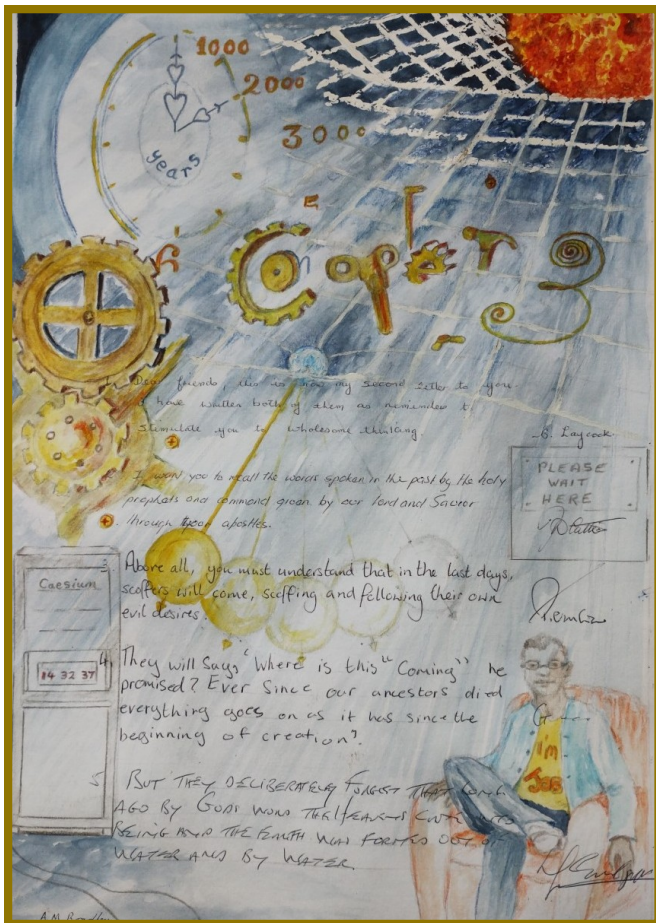 1000
2000
3000
years
Chapter 3
Dear friends, this is now my second letter to you
I have written both of them as reminders to
stimulate you to wholesome thinking.
B. Laycock
PLEASE
WAIT
HERE
I want you to recall the words spoken in the past by the holy
prophets and command given by our lord and Saviour
through your apostles.
3
Above all, you must understand that in the last days,
scoffers will come, scoffing and following their own
evil desires.
Caesium
14 32 37
4
They will say, "Where is this "Coming" he
promised? Ever since our ancestors died
everything goes on as it has since the
beginning of creation".
I'm
JOB
5
BUT THEY DELIBERATELY FORGET THAT LONG
AGO BY GODS WORD THE HEAVENS CAME INTO
BEING AND THE EARTH WAS FORMED OUT OF
WATER AND BY WATER.
A.M. Bradley